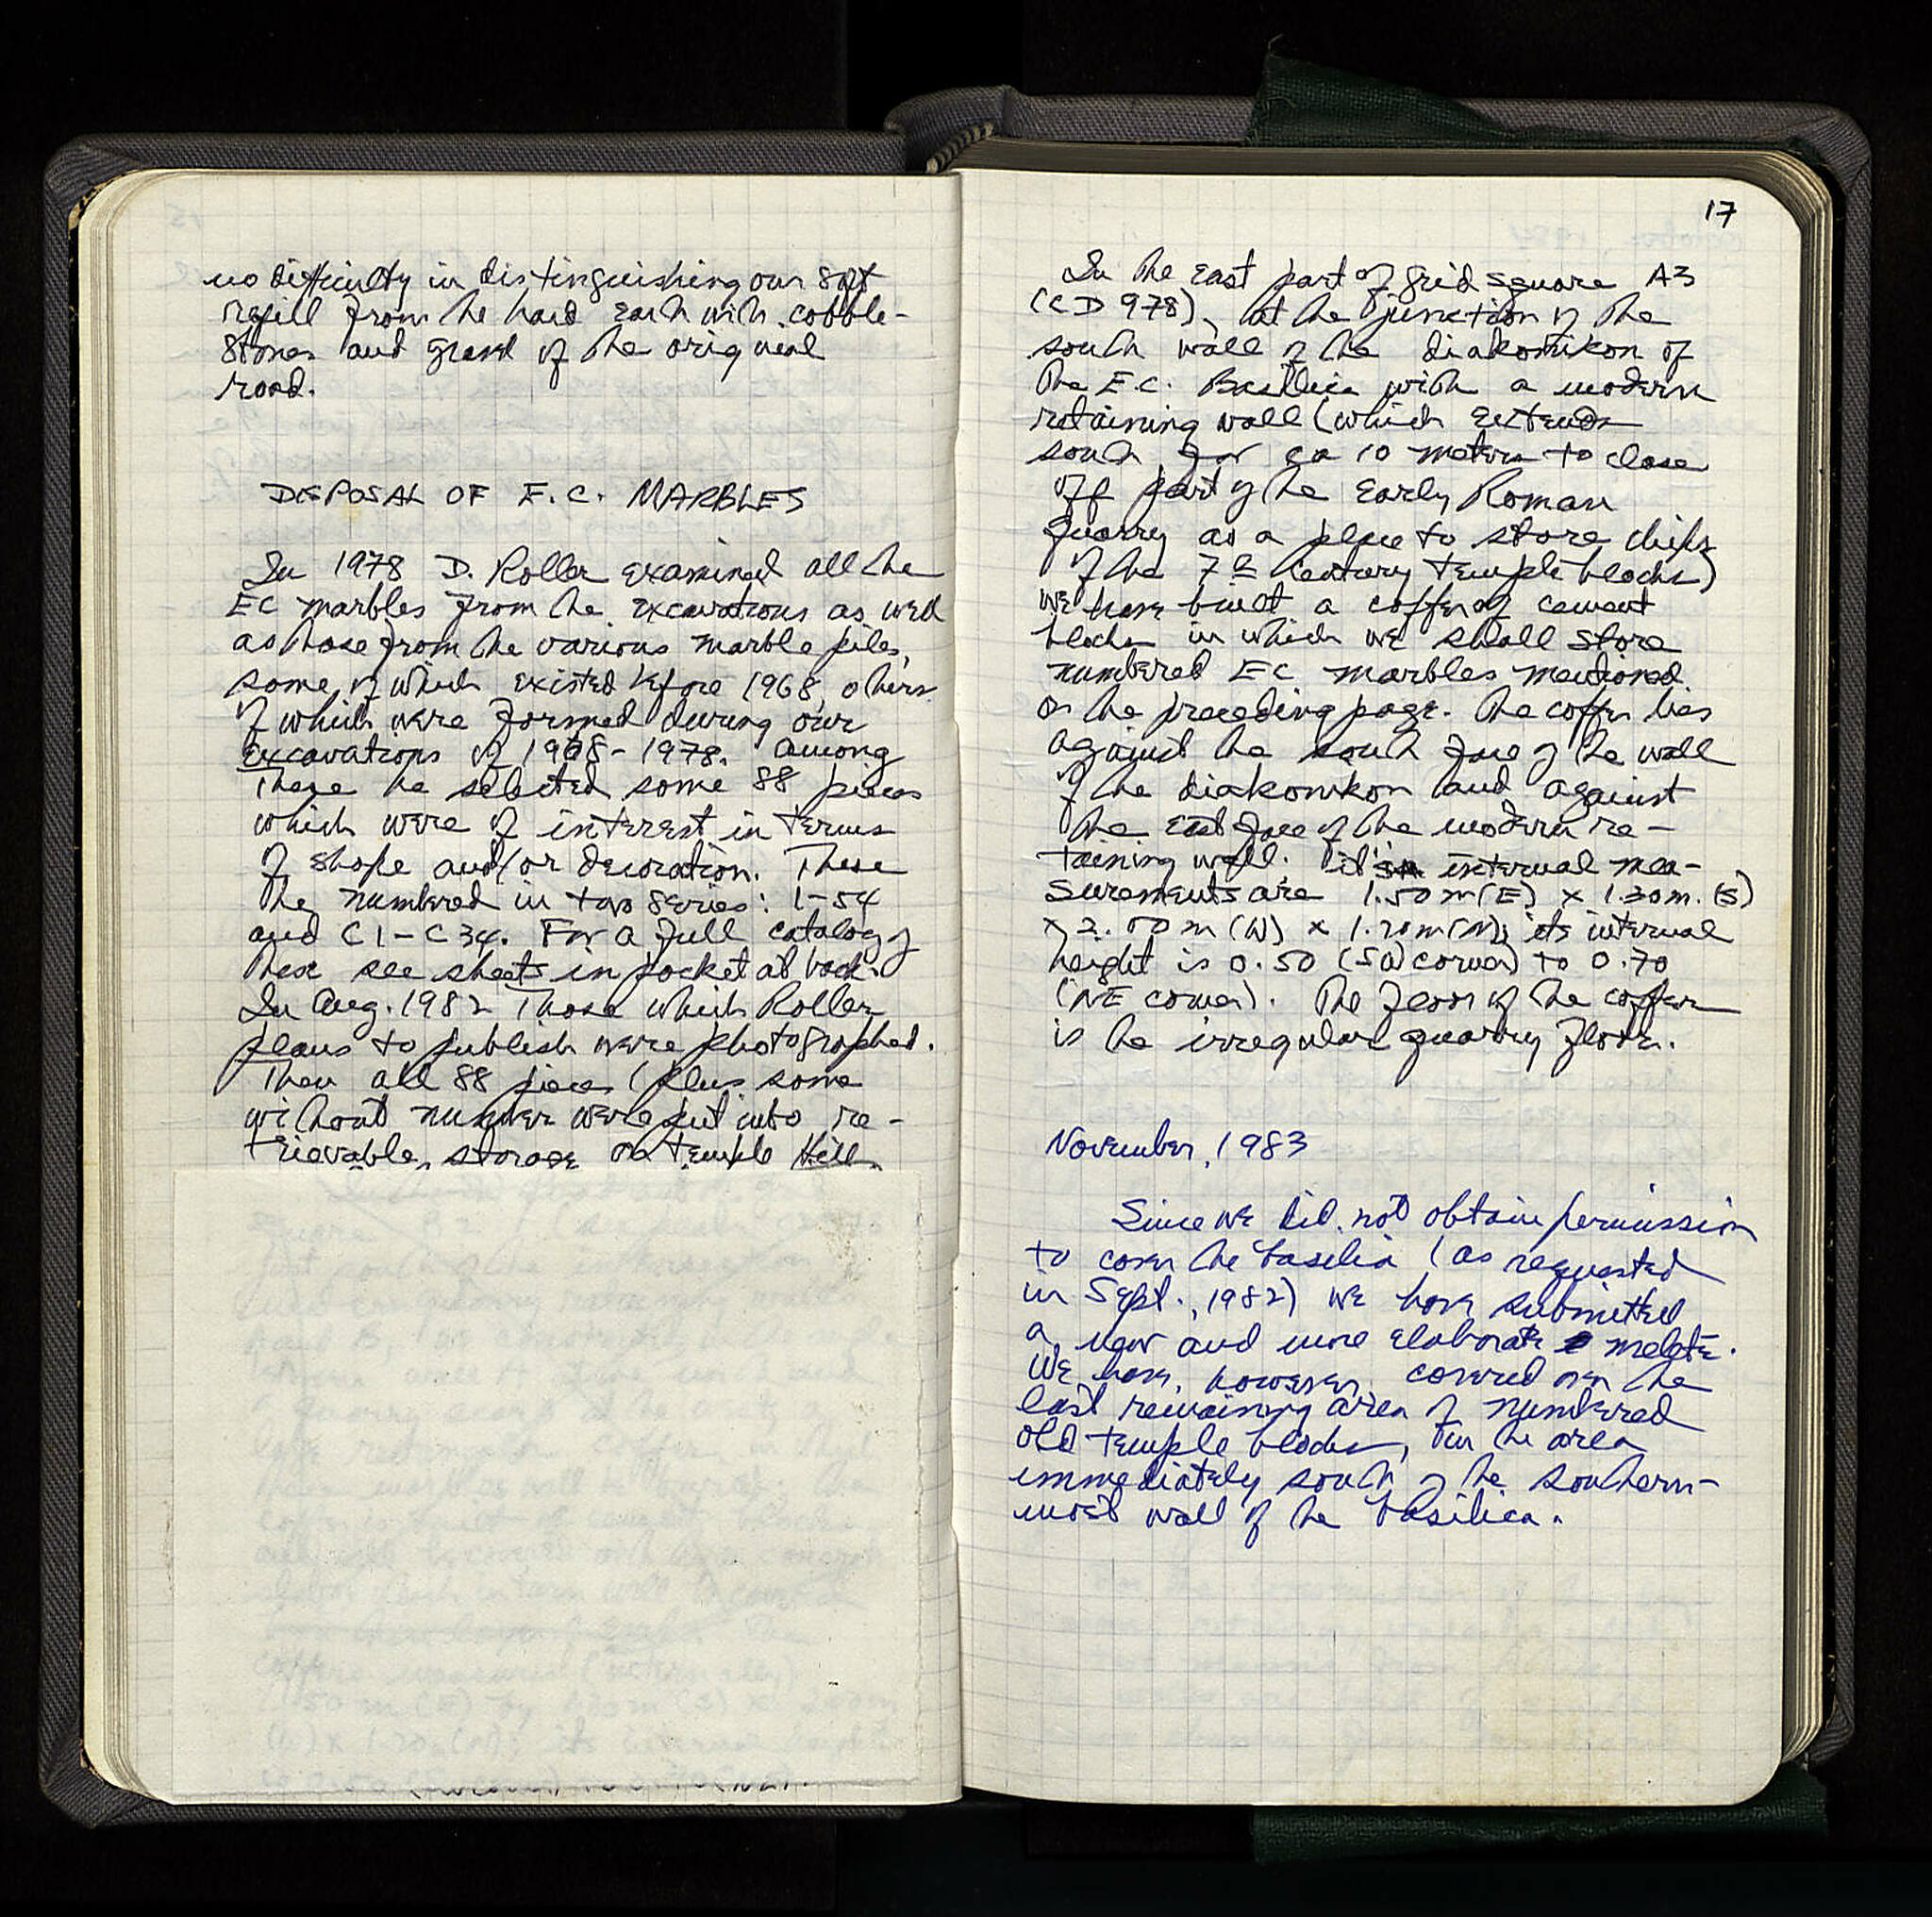 no difficulty in distinguishing our soft
refill from the hard earth with cobble-
stones and gravel of the original
road.
DISPOSAL OF E.C. MARBLES
In 1978 D. Roller examined all the
EC marbles from the excavations as well
as those from the various marble piles,
some of which existed before 1968, others
of which were formed during our
excavations of 1968-1978. Among
these he selected some 88 pieces
which were of interest in terms
of shape and/or decoration. These
he numbered in two series: 1-54
and C1-C34. For a full catalog of
these see sheets in pocket at back.
In Aug. 1982 those which Roller
plans to publish were photographed.
Then all 88 pieces (plus some
without number were put into re-
trievable storage on Temple Hill.
17
In the east part of grid square A3
(CD 978), at the junction of the
south wall of the diakonikon of
the E.C. Basilica with a modern
retaining wall (which extends
south for ca 10 meters to close
off part of the Early Roman
quarry as a place to store chips
of the 7th century temple blocks)
we have built a coffer of cement
blocks in which we shall store
numbered EC marbles mentioned
on the preceding page. The coffer lies
against the south face of the wall
of the diakonikon and against
the east face of the modern re-
taining wall. It's internal mea-
surements are 1.50m (E) x 1.30m. (S)
x 2.00m (W) x 1.20m (N); its internal
height is 0.50 (SW corner) to 0.70
(NE corner). The floor of the coffer
is the irregular quarry floor.
November, 1983
Since we did not obtain permission
to cover the basilica (as requested
in Sept., 1982) we have submitted
a new and more elaborate melete.
We have, however, covered over the
last remaining area of numbered
old temple blocks, in the area
immediately south of the southern-
most wall of the basilica.